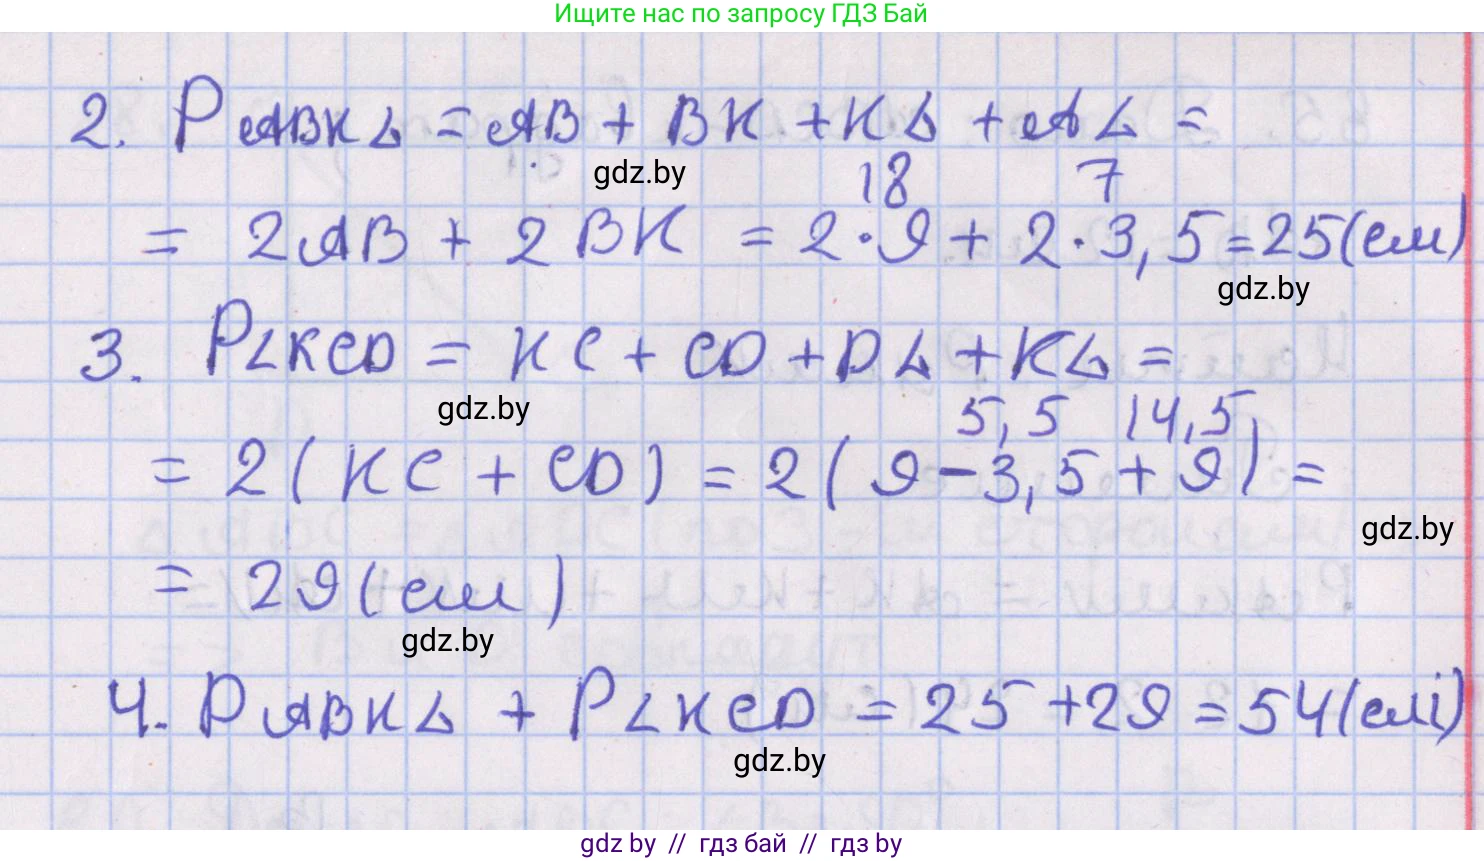 Ищите нас по запросу ГДЗ Бай
2. P ABKL = AB + BK + KL + AL =
gdz.by
18 7
= 2AB + 2BK = 2·9 + 2·3,5 = 25(см)
gdz.by
3. PLKCD = KC + CD + DL + KL =
gdz.by
5,5 14,5
= 2(KC + CD) = 2(9-3,5+9) =
gdz.by
= 29(см)
gdz.by
4. PABKL + PLKCD = 25+29=54(см)
gdz.by
gdz by // гдз бай // гдз by